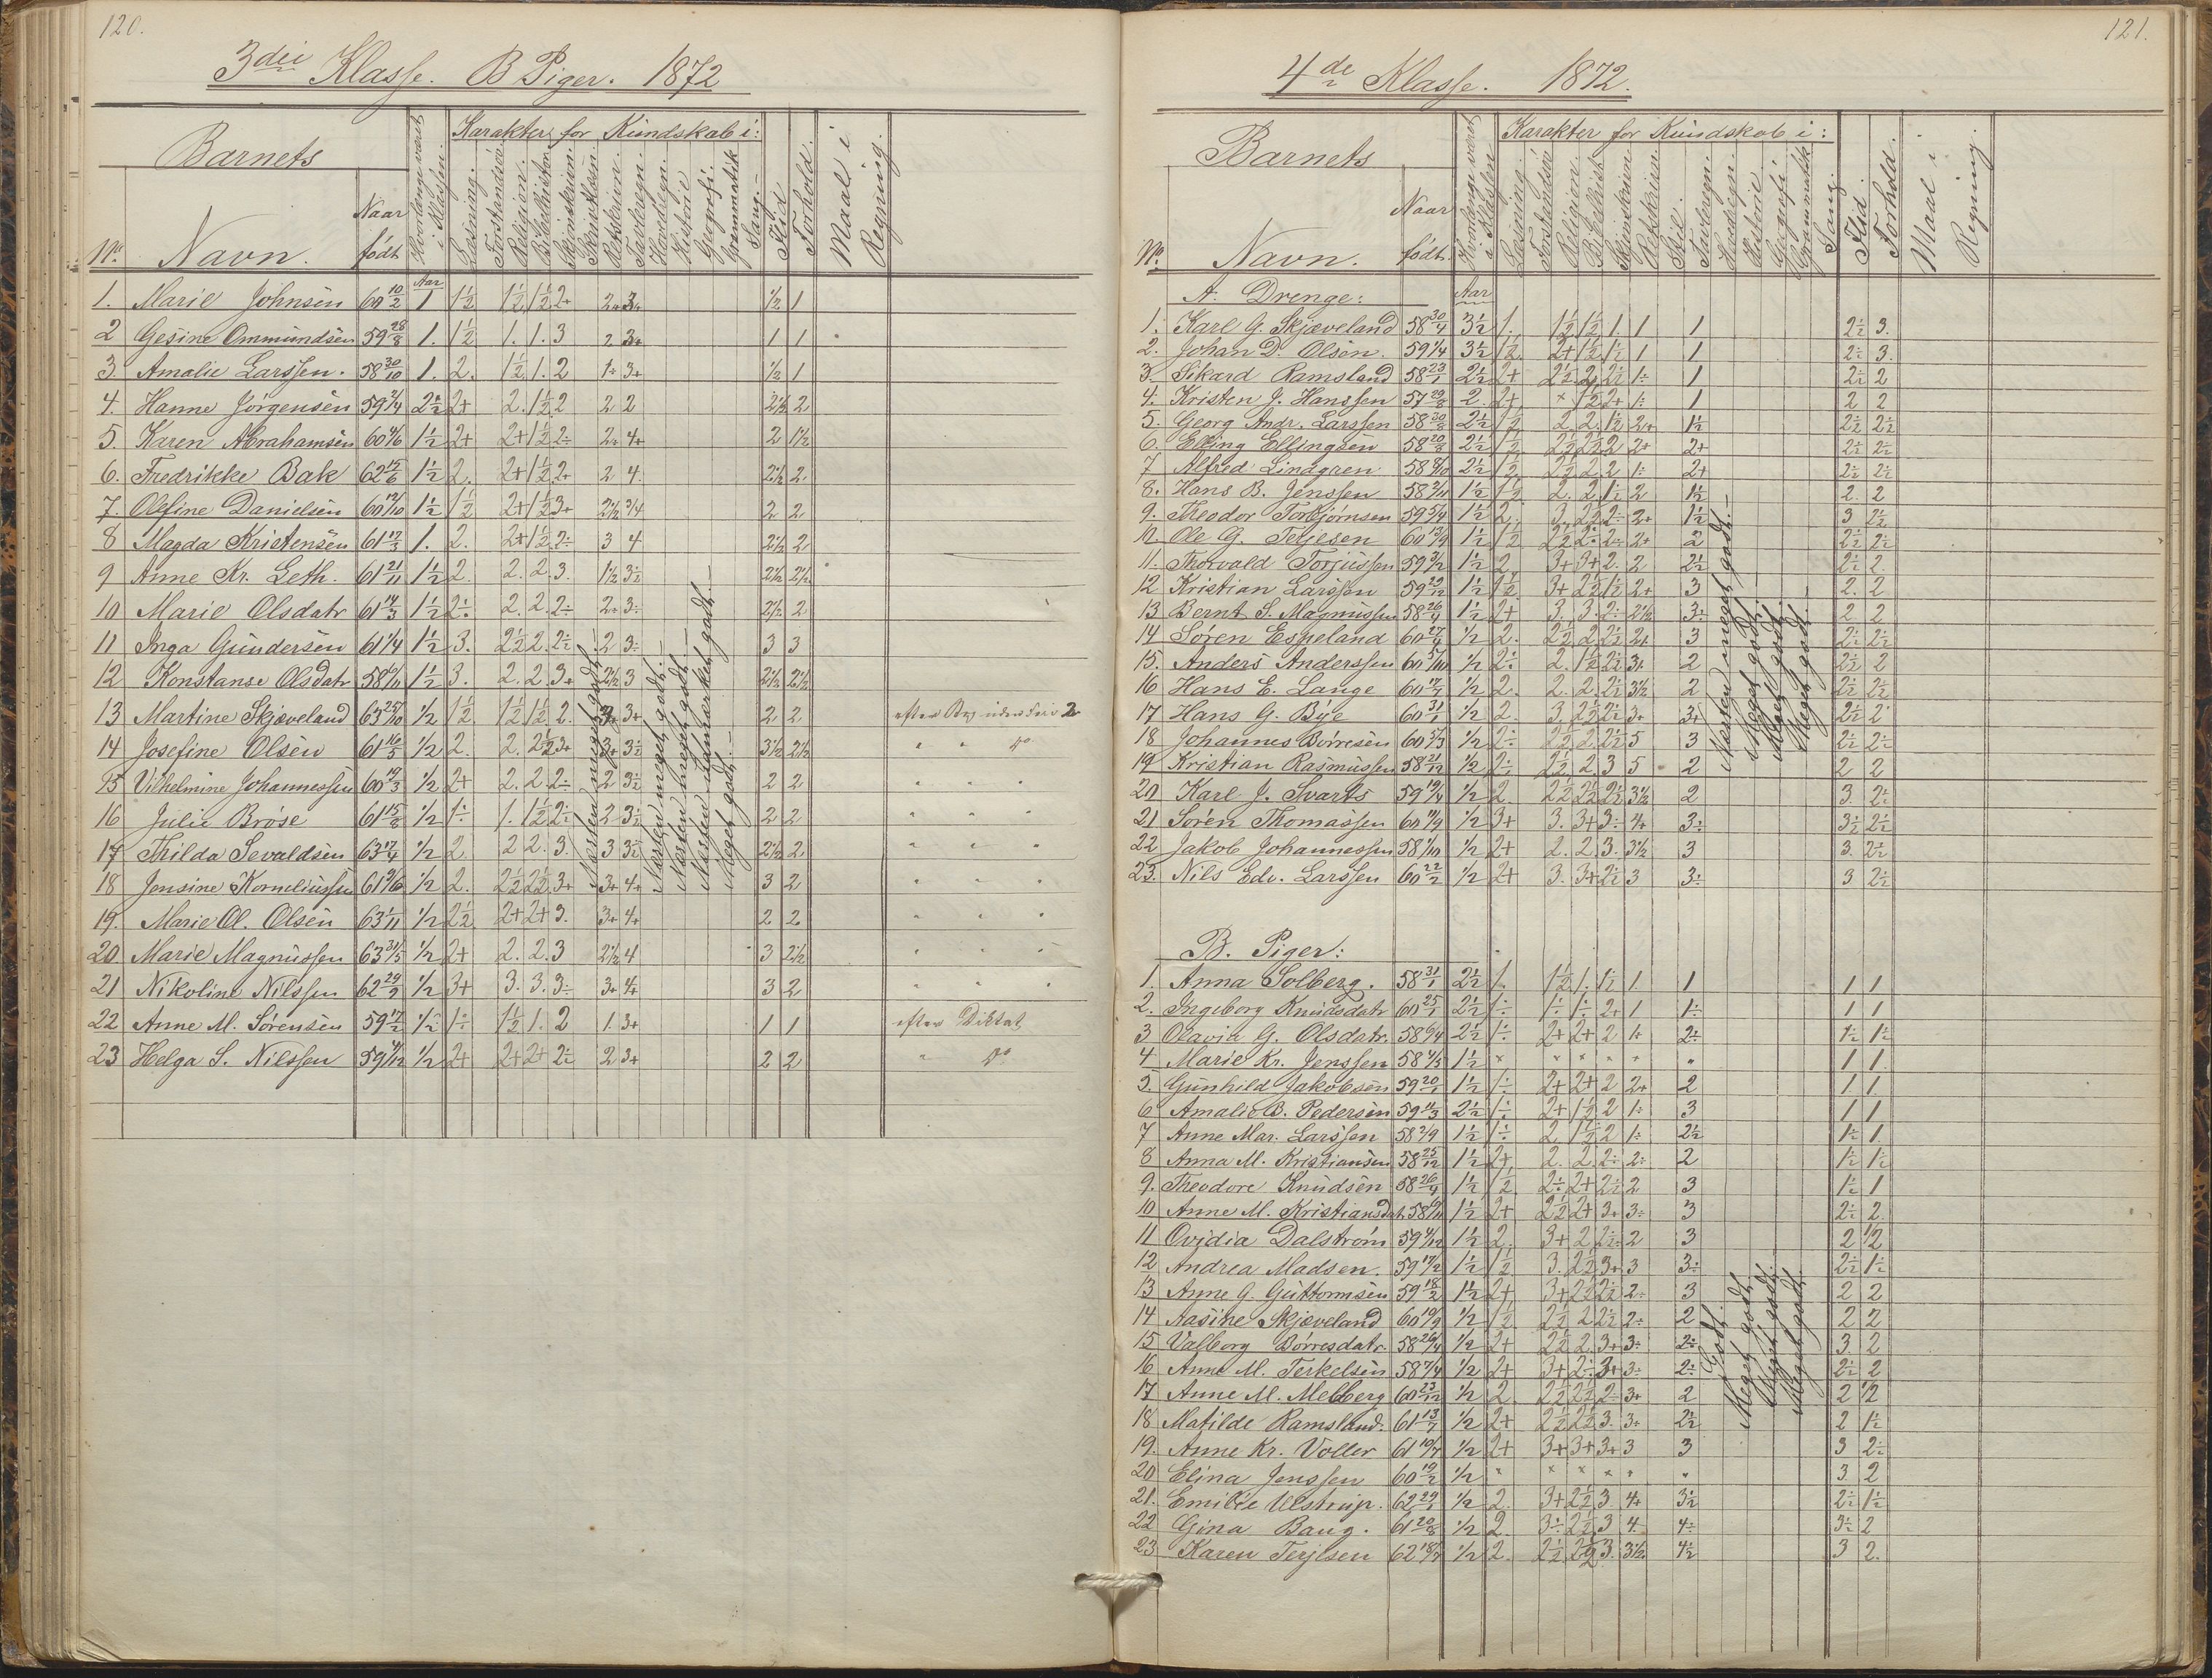 120.
3die Klasse. B Piger. 1872
Barnets
Hvorlænge været i Klassen.
Karakter for Kundskab i:
No. Navn. Naar født Læsning. Religion. Skjønskrivn. Retskrivn. Tavleregn. Hovedregn. Historie Geografi. Grammatik Sang. Flid Forhold. Maal i Regning.
Aar
1. Marie Johnsen 60 10/2 1 1½ 1½ 1½ 2+ 2+ 3+ ½ 1
2 Gesine Ommundsen 59 28/8 1. 1½ 1. 1. 3 2 3+ 1 1
3. Amalie Larssen. 58 30/10 1. 2. 1½ 1. 2 1÷ 3+ ½ 1
4. Hanne Jörgensen 59 2/4 2½ 2+ 2. 1½ 2 2 2 2½ 2
5. Karen Abrahamsen 60 4/6 1½ 2+ 2+ 1½ 2÷ 2÷ 4+ 2 1½
6. Fredrikke Bak 62 15/6 1½ 2. 2+ 1½ 2+ 2 4. 2½ 2
7. Olefine Danielsen 60 13/10 1½ 1½ 2+ 1½ 3+ 2½ 3/4 2 2
8 Magda Kristensen 61 17/3 1. 2. 2+ 1½ 2÷ 3 4 2½ 2
9 Anne Kr. Leth. 61 21/11 1½ 2. 2. 2. 3. 1½ 3½ 2½ 2½
10 Marie Olsdatr 61 14/3 1½ 2÷ 2. 2. 2÷ 2÷ 3÷ 2½ 2
11 Inga Gundersen 61 1/4 1½ 3. 2½ 2. 2½ 2 3÷ 3 3
12 Konstanse Olsdatr 58 1½ 3. 2. 2. 3+ 2½ 3 2½ 2½
13 Martine Skjæveland 63 25/10 ½ 1½ 1½ 1½ 2. 3+ 3+ 2 2
14 Josefine Olsen 61 16/5 ½ 2. 2. 2½ 3+ 3+ 3½ 3½ 2½ " " do
15 Vilhelmine Johannessen 60 19/3 ½ 2+ 2. 2. 2÷ 2 3½ 2 2 " " "
16 Julie Bröse 61 15/8 ½ 1÷ 1. 1½ 2÷ 2 3½ 2 2 " " "
17 Thilda Sevaldsen 63 17/4 ½ 2 2 2. 3. 3 3½ 2½ 2 " " "
18 Jensine Korneliussen 61 ½ 2. 2½ 2½ 3+ 3+ 4+ 3 2 " " "
19. Marie Ol. Olsen 63 1/11 ½ 2½ 2+ 2+ 3. 3+ 4+ 2 2 " " "
20 Marie Magnussen 63 31/5 ½ 2+ 2. 2. 3 2½ 4 3 2½ " " "
21 Nikoline Nilssen 62 29/9 ½ 3+ 3. 3. 3÷ 3+ 4+ 3 2 " " "
22 Anne M. Sörensen 59 17/2 ½ 1÷ 1½ 1. 2 1. 3+ 1 1 efter Diktat
23 Helga S. Nilssen 59 4/12 ½ 2+ 2+ 2+ 2½ 2 3+ 2 2 " do
Næsten meget godt.
Næsten meget godt.
Næsten meget godt
Næsten udmærket godt.
Meget godt.
121.
4de Klasse. 1872.
Barnets
Hvorlænge været i Klassen
Karakter for Kundskab i:
No. Navn. Naar født. Læsning. Religion. Skjønskrivn. Retskrivn. Stil. Tavleregn. Hovedregn. Historie Geografi. Grammatik Sang. Flid. Forhold. Maal i Regning.
A. Drenge: Aar
1. Karl G. Skjæveland 58 30/4 3½ 1. 1½ 1½ 1. 1 1 2½ 3.
2. Johan D. Olsen. 59 1/4 3½ 1½ 2+ 1½ 1½ 1 1 2÷ 3.
3. Sikard Ramsland 58 23/1 2½ 2+ 2½ 2. 2½ 1÷ 1 2½ 2
4. Kristen J. Hanssen 57 29/8 2. 2+ 1½ 2+ 1÷ 1 2 2
5. Georg Andr. Larssen 58 30/8 2½ 1½ 2. 2. 1½ 2+ 1½ 2½ 2½
6. Elling Ellingsen 58 20/8 2½ 1½ 2½ 2½ 2 2+ 2+ 2½ 2½
7 Alfred Lindgren 58 2½ 1½ 2½ 2. 2 1÷ 2+ 2½ 2½
8. Hans B. Jenssen 58 2/11 1½ 1½ 2. 2. 1½ 2 1½ 2. 2
9. Theodor Torbjörnsen 59 5/4 1½ 2. 3. 2½ 2÷ 2+ 1½ 3 2½
10 Ole G. Terjesen 60 1½ 1½ 2½ 2÷ 2÷ 2+ 2 2½ 2½
11. Thorvald Torjussen 59 1½ 2 3+ 3+ 2. 2 2½ 2½ 2.
12 Kristian Larssen 59 29/12 1½ 1½ 3+ 2½ 1½ 2+ 3 2. 2
13 Bernt S. Magnussen 58 26/4 1½ 2+ 3. 3. 2÷ 2½ 3÷ 2 2
14 Sören Espeland 60 17/4 ½ 2. 2½ 2. 2½ 2+ 3 2÷ 2½
15. Anders Anderssen 60 5/10 ½ 2÷ 2. 1½ 2½ 3+ 2 2½ 2
16 Hans E. Lange 60 ½ 2. 2. 2. 2½ 3½ 2 2½ 2½
17 Hans G. Bye 60 31/1 ½ 2. 3. 2½ 2½ 3+ 3+ 2½ 2
18 Johannes Börresen 60 5/3 ½ 2÷ 2½ 2. 2½ 5 3 2½ 2½
19 Kristian Rasmussen 58 21/12 ½ 2÷ 2½ 2. 3 5 2 2 2
20 Karl J. Svarts 59 19/4 ½ 2. 2½ 2½ 2½ 3½ 2 3. 2÷
21 Sören Thomassen 60 19/9 ½ 3+ 3. 3+ 3÷ 4+ 3÷ 3½ 2½
22 Jakob Johannessen 58 1/10 ½ 2+ 2. 2. 3. 3½ 3 3. 2½
23. Nils Edv. Larssen 60 22/2 ½ 2+ 3. 3+ 2½ 3 3÷ 3 2½
Næsten meget godt.
Meget godt.
Meget godt.
Meget godt.
B. Piger:
1. Anna Solberg. 58 31/1 2½ 1. 1½ 1. 1½ 1 1 1 1
2. Ingeborg Knudsdatr 60 25/1 2½ 1÷ 1÷ 1÷ 2+ 1 1÷ 1 1
3 Olavia G. Olsdatr. 58 2½ 1÷ 2+ 2+ 2 1+ 2÷ 1½ 1½
4 Marie Kr. Jenssen 58 4/5 1½ " " " " " " 1 1
5. Gunhild Jakobsen 59 20/1 1½ 1÷ 2+ 2+ 2 2+ 2 1 1
6 Amalie B. Pedersen 59 11/3 2½ 1÷ 2+ 1½ 2 1÷ 3 1 1
7 Anne Mar. Larssen 58 2/9 1½ 1÷ 2 1½ 2 1÷ 2½ 1÷ 1
8 Anna M. Kristiansen 58 25/12 1½ 2+ 2. 2. 2÷ 2÷ 2 1½ 1½
9. Theodore Knudsen 58 26/4 1½ 1½ 2÷ 2+ 2½ 2 3 1÷ 1
10 Anne M. Kristiansdatr 58 1½ 2+ 2½ 2+ 3+ 3÷ 3 2÷ 2.
11 Ovidia Dalström 59 11/12 1½ 2. 3+ 2 2½ 2 3 2 ½
12 Andrea Madsen. 59 17/2 1½ 1½ 3. 2½ 3+ 3 3÷ 2½ 1½
13 Anne G. Guttormsen 59 18/2 1½ 2+ 3+ 2½ 2½ 2÷ 3 2 2
14 Aasine Skjæveland 60 10/9 ½ 1½ 2½ 2 2½ 2÷ 2 2 2
15 Valborg Börresdatr. 58 26/4 ½ 2+ 2½ 2. 3+ 3÷ 2÷ 3. 2
16 Anne M. Terkelsen 58 7/4 ½ 2+ 3+ 2÷ 3+ 3÷ 2÷ 2½ 2
17 Anne M. Melberg 60 23/12 ½ 2. 2½ 2½ 2÷ 3+ 2 2 ½
18 Matilde Ramsland. 61 13/7 ½ 2+ 2½ 2½ 3. 3+ 2½ 2 1½
19. Anne Kr. Voller 61 10/7 ½ 2+ 3+ 3+ 3+ 3 3 3 2÷
20 Elina Jenssen 60 19/2 ½ " " " " " " 3. 2
21. Emilie Ulstrup. 62 29/1 ½ 2. 3+ 2½ 3 4+ 3½ 2½ 1½
22 Gina Baug. 61 20/8 ½ 2. 3÷ 2½ 3 4. 4÷ 3½ 2
23 Karen Terjesen 62 18/7 ½ 2. 2½ 2½ 3. 3½ 4½ 3 2.
Godt.
Meget godt.
Meget godt.
Meget godt.